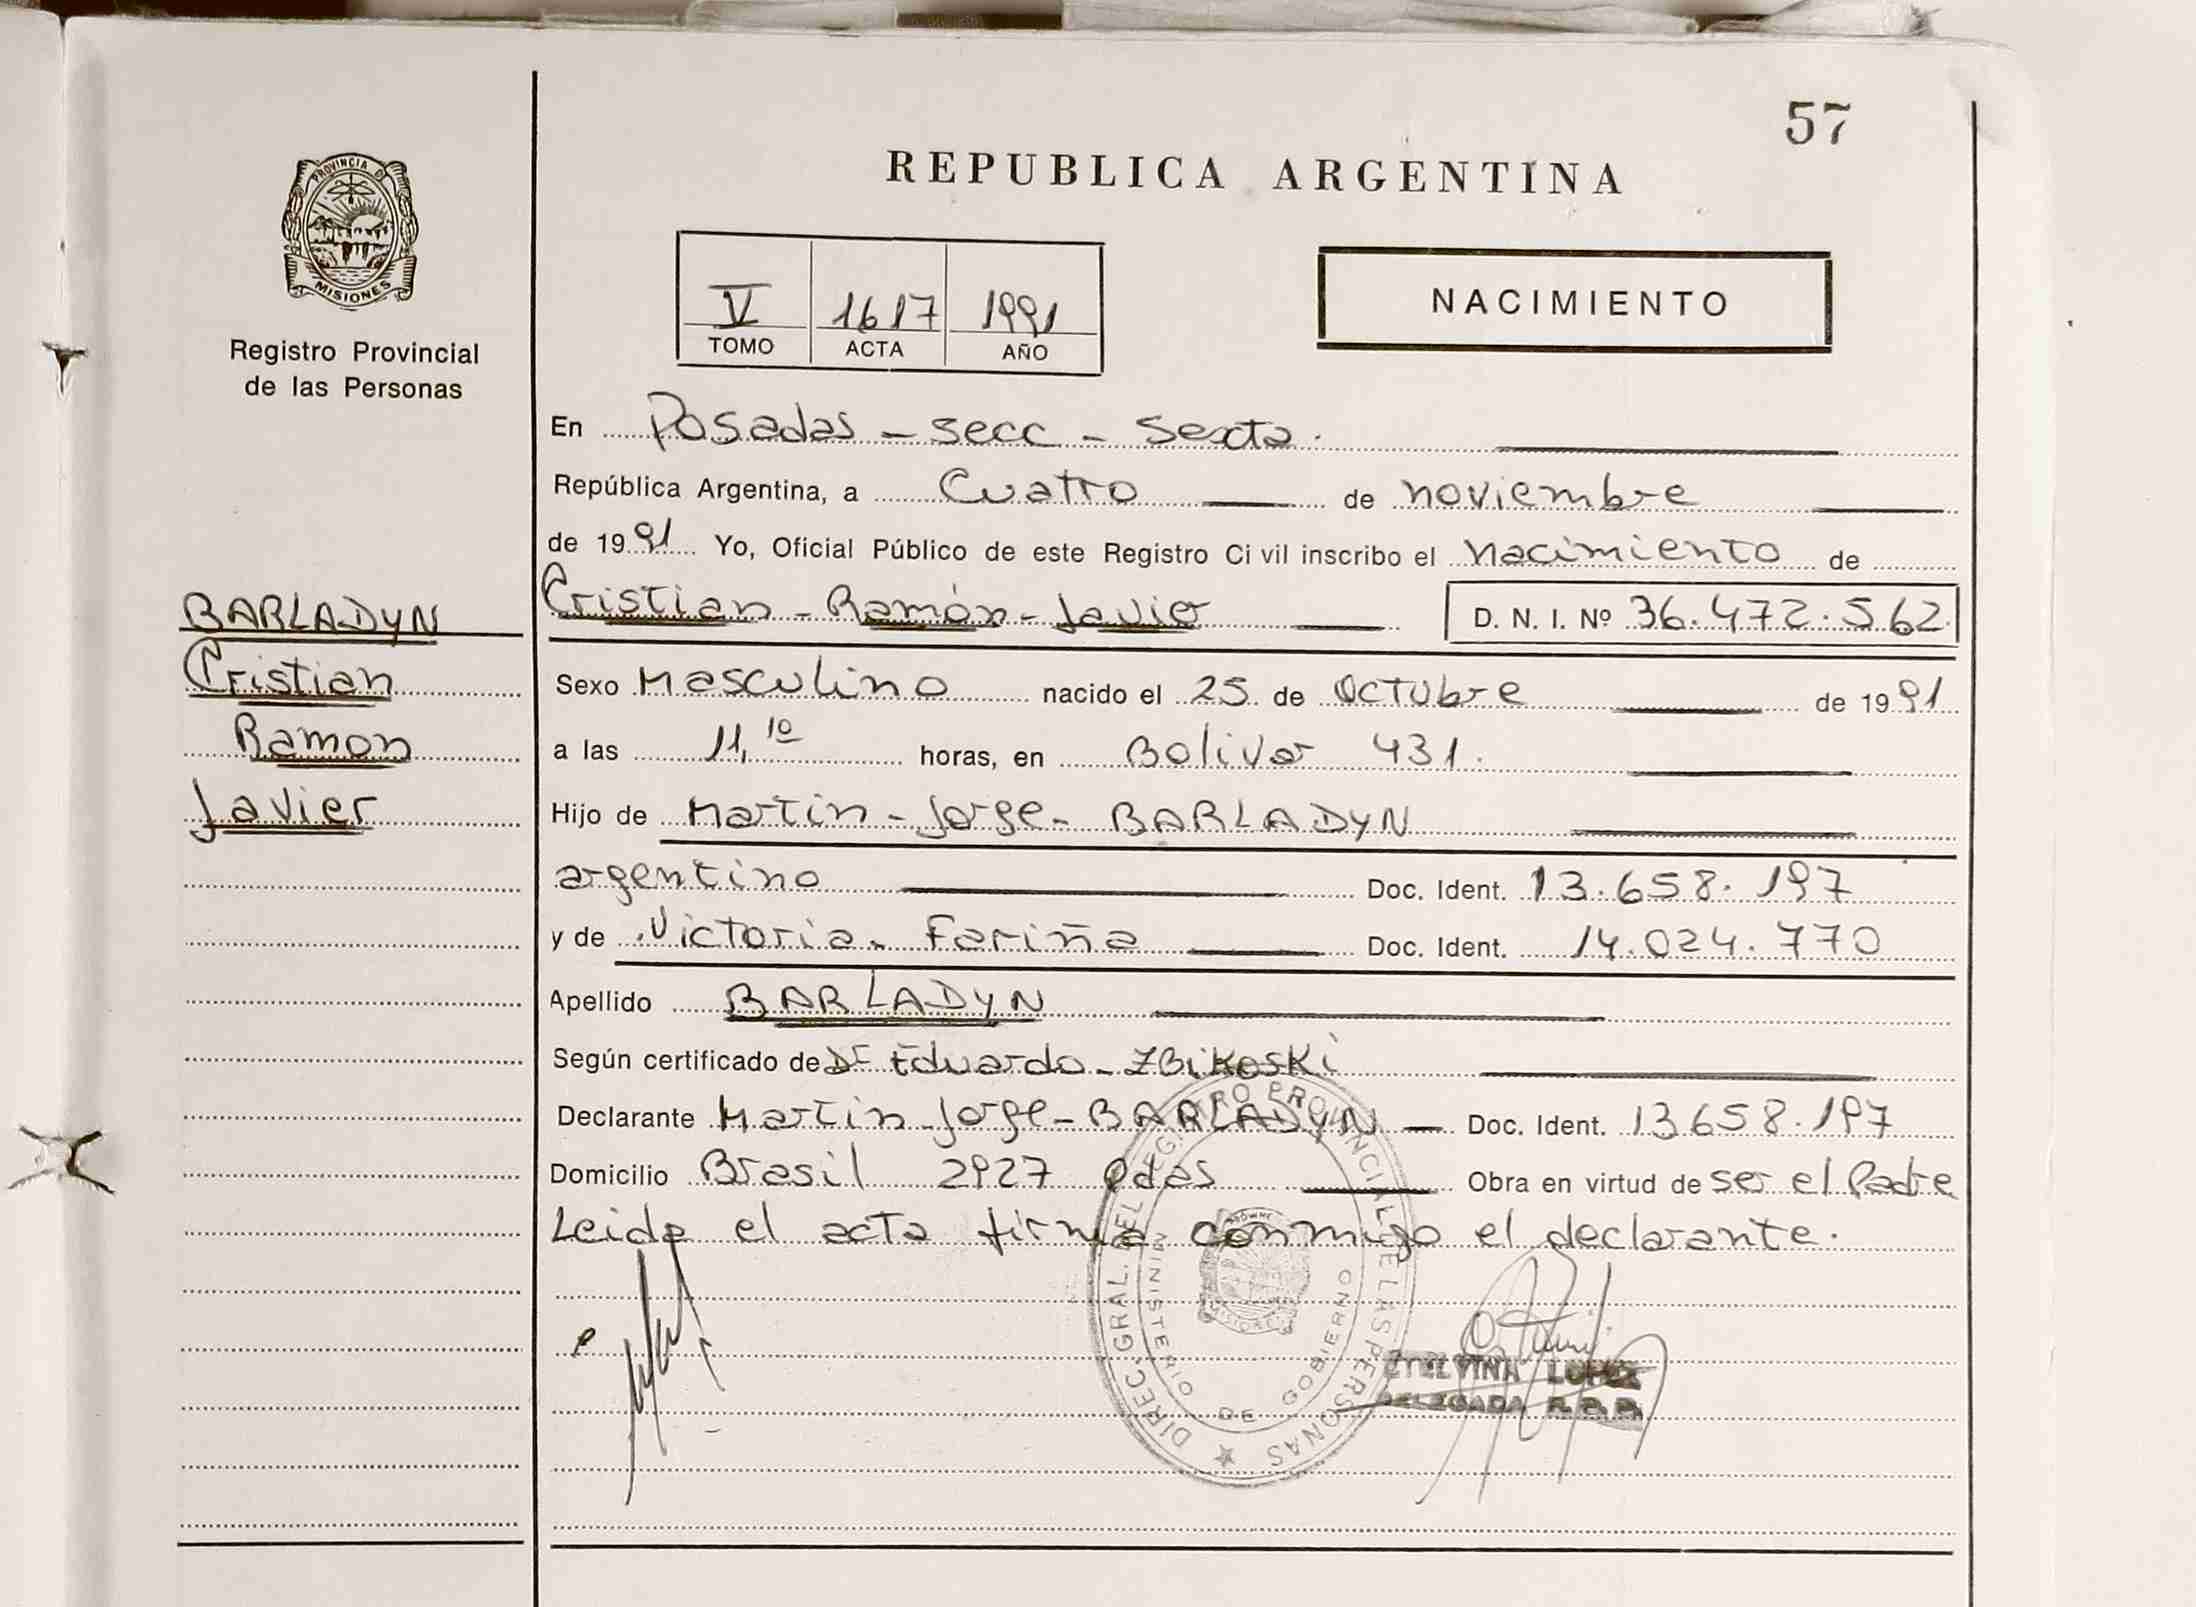 57
REPUBLICA ARGENTINA
PROVINCIA D
MISIONES
Registro Provincial
de las Personas
V 1617 1991
TOMO ACTA AÑO
NACIMIENTO
BARLADYN
Cristian
Ramon
Javier
En Posadas - secc - Sexta.
República Argentina, a Cuatro de noviembre
de 1991 Yo, Oficial Público de este Registro Civil inscribo el nacimiento de
Cristian - Ramón - Javier D. N. I. Nº 36.472.562
Sexo Masculino nacido el 25 de Octubre de 1991
a las 11,10 horas, en Bolivar 431.
Hijo de Martin - Jorge - BARLADYN
argentino Doc. Ident. 13.658.197
y de Victoria - Fariña Doc. Ident. 14.024.770
Apellido BARLADYN
Según certificado de Dr Eduardo - ZBiKosKi
Declarante Martin - Jorge - BARLADYN - Doc. Ident. 13658.197
Domicilio Brasil 2927 Pdas Obra en virtud de ser el Padre
Leida el acta firma conmigo el declarante.
DIREC. GRAL. DEL REGISTRO PROVINCIAL DE LAS PERSONAS
MINISTERIO DE GOBIERNO
ETELVINA LOPEZ
DELEGADA R.P.P.